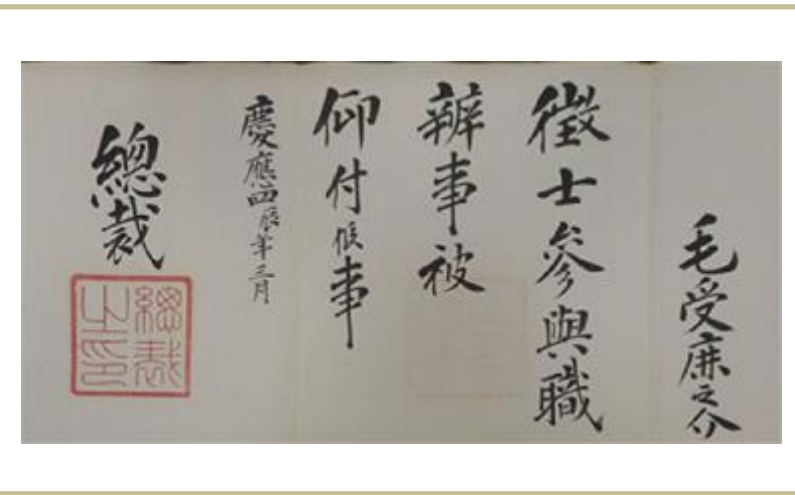 毛受鹿之介
徴士參與職
辦事被
仰付候事
慶應四辰年三月
總裁
總裁
之印